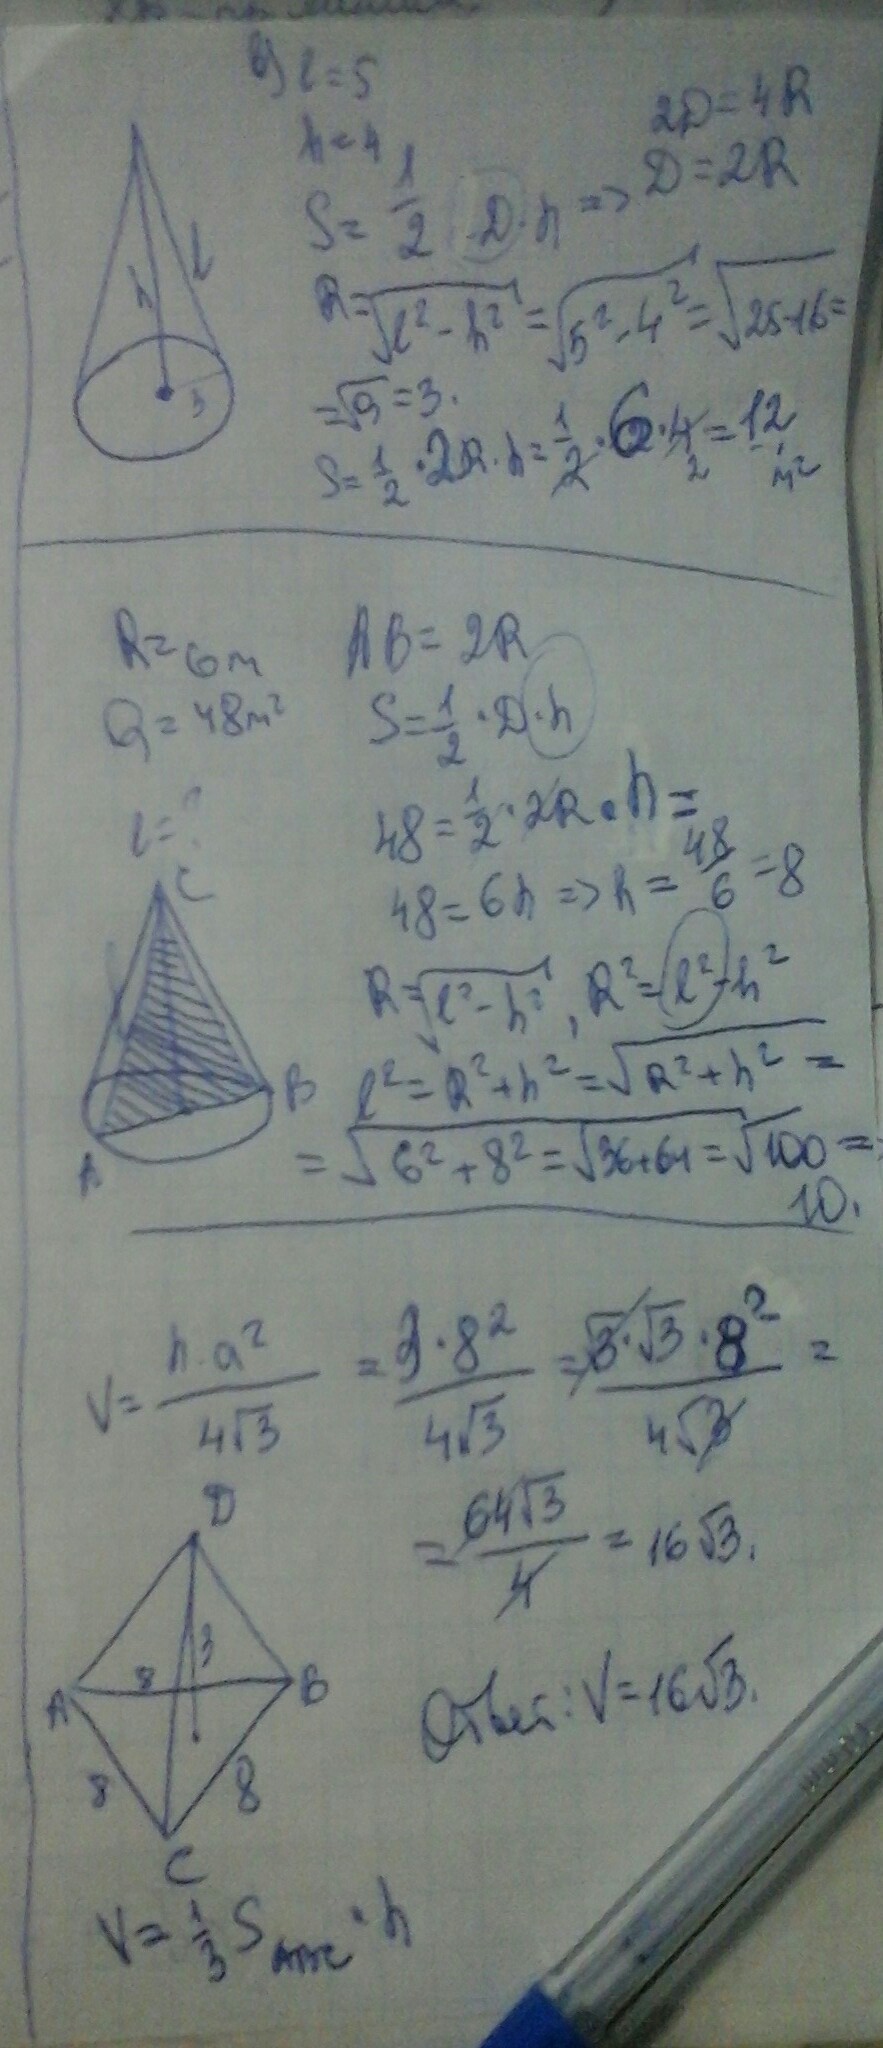 в) l=5
h=4
2D=4R
S=1/2·D·h => D=2R
R=√(l²-h²)=√(5²-4²)=√(25-16)=
=√9=3.
S=1/2·2R·h=1/2·6·4=12 м²
2
h
l
3
R=6м
Q=48м²
l=?
AB=2R
S=1/2·D·h
48=1/2·2R·h=
48=6h => h=48/6=8
R=√(l²-h²), R²=l²-h²
l²=R²+h²=√(R²+h²)=
=√(6²+8²)=√(36+64)=√100=
10.
C
l
B
A
V=h·a²/4√3=3·8²/4√3=√3·√3·8²/4√3=
=64√3/4=16√3.
Ответ: V=16√3.
D
3
8
A
B
8
8
C
V=1/3 S ABC·h